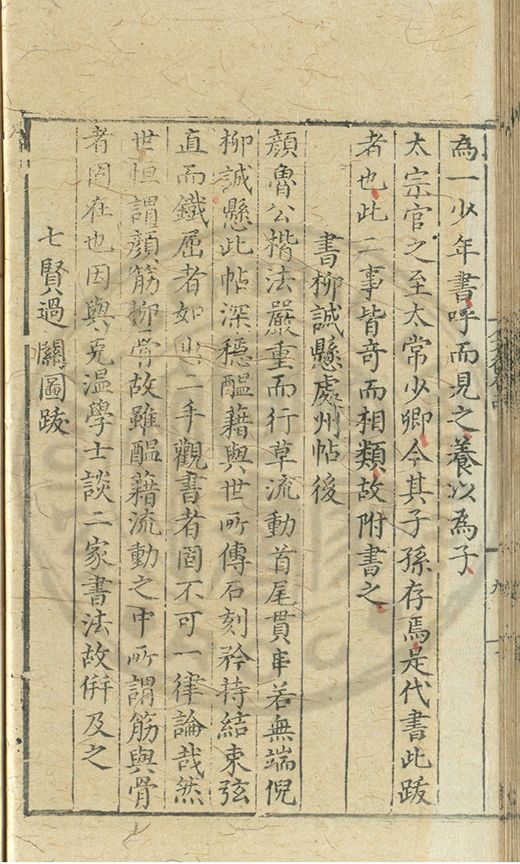 為一少年書呼而見之養以為子
太宗官之至太常少卿今其子孫存焉是代書此跋
者也此二事皆奇而相類故附書之
書柳誠懸處州帖後
顔魯公楷法嚴重而行草流動首尾貫串若無端倪
柳誠懸此帖深穩醖藉與世所傳石刻矜持結束弦
直而鐵屈者如出二手觀書者固不可一律論哉然
世恒謂顔筋柳骨故雖醖藉流動之中所謂筋與骨
者固在也因與克温學士談二家書法故併及之
七賢過關圖跋